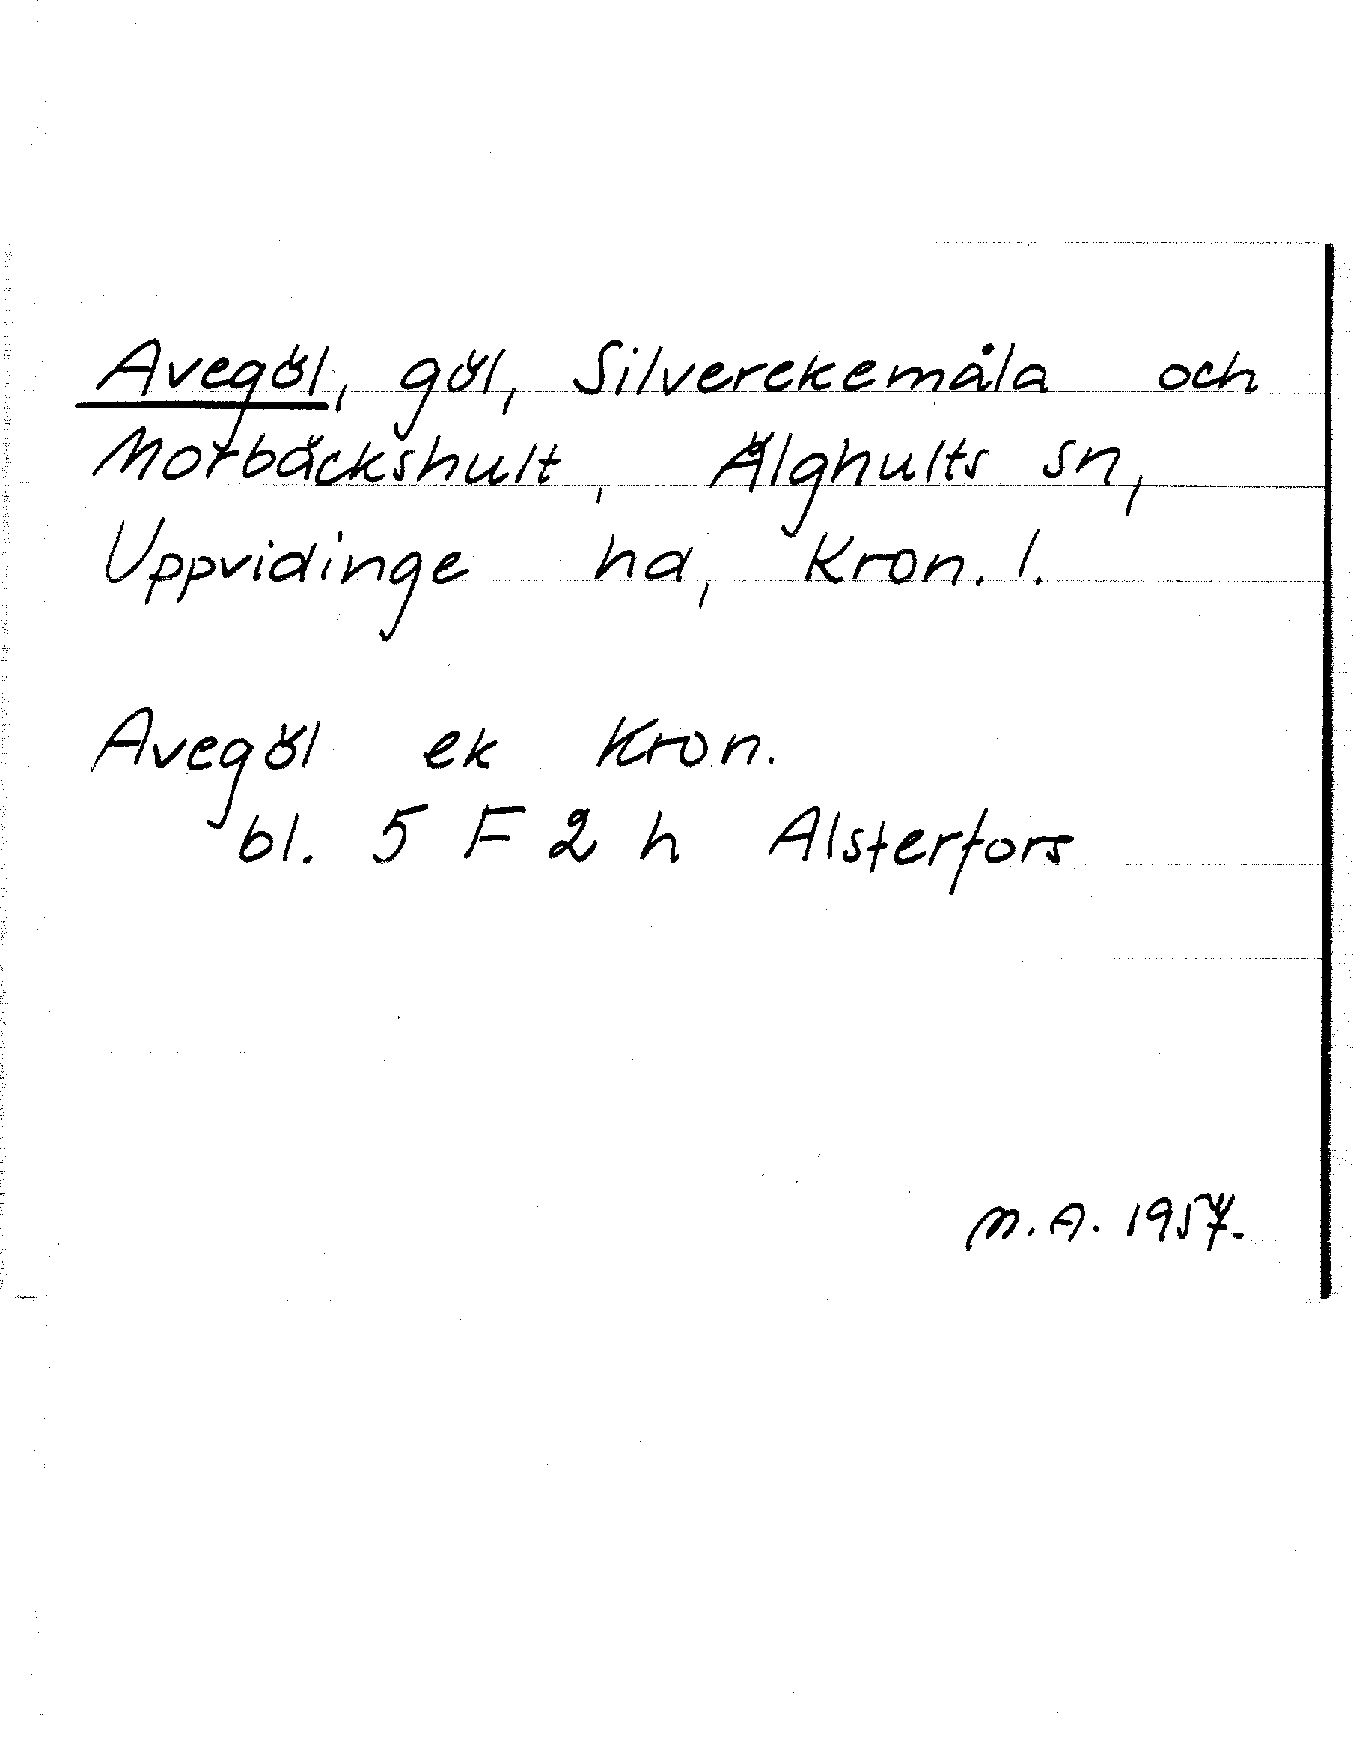 Avegöl, göl, Silverekemåla och
Motbäckshult, Älghults sn,
Uppvidinge hd, Kron. l.
Avegöl ek Kron.
bl. 5 F 2 h Alsterfors
M.A. 1957.